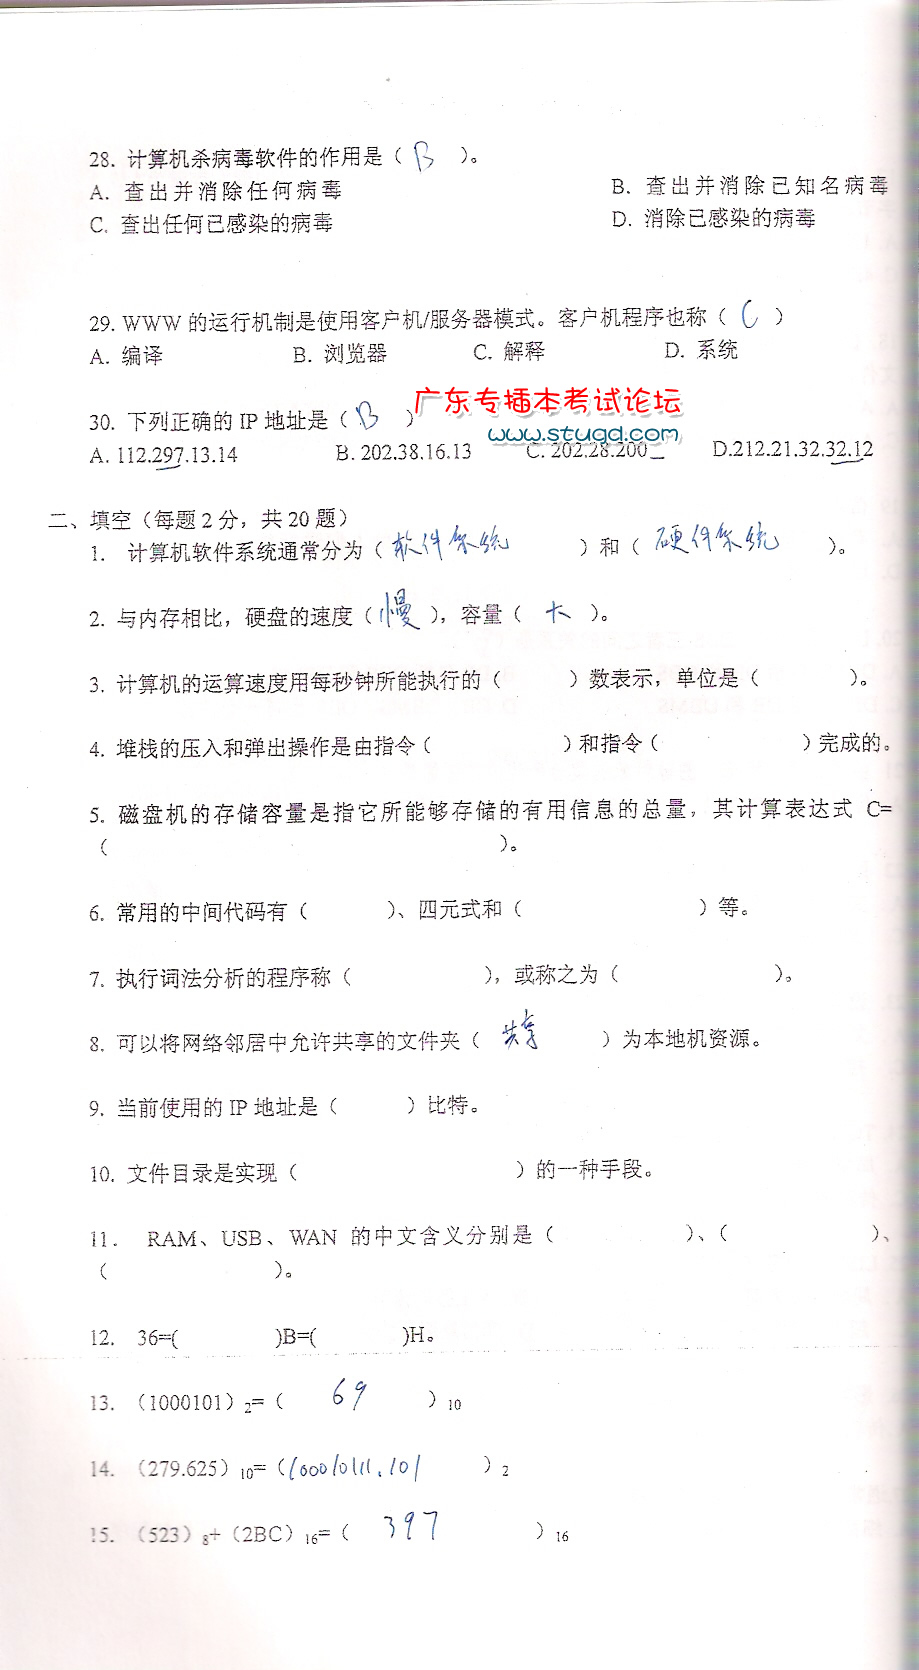 28. 计算机杀病毒软件的作用是（ B ）。
A. 查出并消除任何病毒 B. 查出并消除已知名病毒
C. 查出任何已感染的病毒 D. 消除已感染的病毒
29. WWW 的运行机制是使用客户机/服务器模式。客户机程序也称（ C ）
A. 编译 B. 浏览器 C. 解释 D. 系统
广东专插本考试论坛
30. 下列正确的 IP 地址是（ B ）
www.stugd.com
A. 112.297.13.14 B. 202.38.16.13 C. 202.28.200_ D.212.21.32.32.12
二、填空（每题 2 分，共 20 题）
1. 计算机软件系统通常分为（ 软件系统 ）和（ 硬件系统 ）。
2. 与内存相比，硬盘的速度（ 慢 ），容量（ 大 ）。
3. 计算机的运算速度用每秒钟所能执行的（ ）数表示，单位是（ ）。
4. 堆栈的压入和弹出操作是由指令（ ）和指令（ ）完成的。
5. 磁盘机的存储容量是指它所能够存储的有用信息的总量，其计算表达式 C=
（ ）。
6. 常用的中间代码有（ ）、四元式和（ ）等。
7. 执行词法分析的程序称（ ），或称之为（ ）。
8. 可以将网络邻居中允许共享的文件夹（ 共享 ）为本地机资源。
9. 当前使用的 IP 地址是（ ）比特。
10. 文件目录是实现（ ）的一种手段。
11. RAM、USB、WAN 的中文含义分别是（ ）、（ ）、
（ ）。
12. 36=( )B=( )H。
13. （1000101）2=（ 69 ）10
14. （279.625）10=（100010111.101 ）2
15. （523）8+（2BC）16=（ 397 ）16